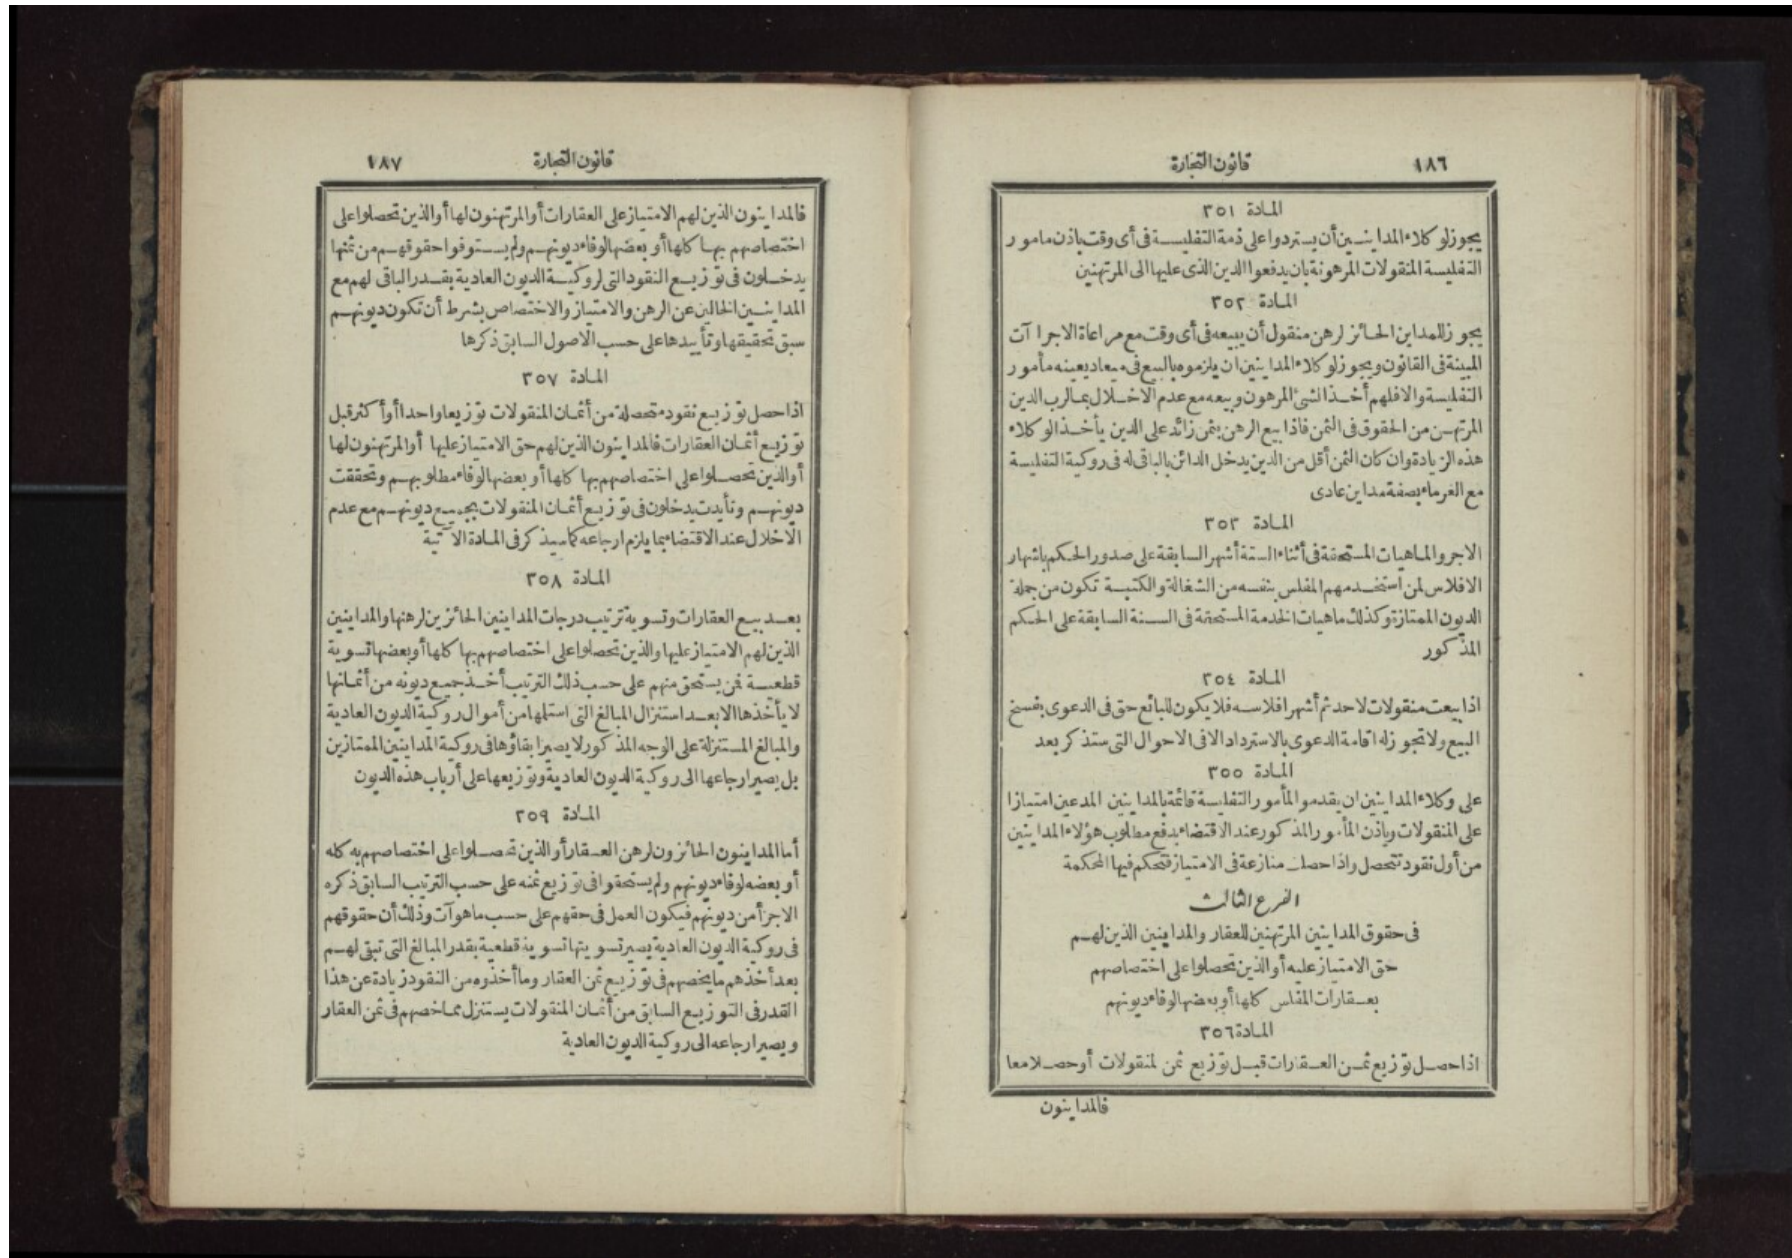 ١٨٦
قانون التجارة
المادة ٣٥١
يجوز لوكلاء المداينين أن يستردوا على ذمة التفليسة فى أى وقت باذن مامور
التفليسة المنقولات المرهونة بان يدفعوا الدين الذى عليها الى المرتهنين
المادة ٣٥٢
يجوز للمداين الحائز لرهن منقول أن يبيعه فى أى وقت مع مراعاة الاجرا آت
المبينة فى القانون ويجوز لوكلاء المداينين ان يلزموه بالبيع فى ميعاد يعينه مأمور
التفليسة والا فلهم أخذ الشئ المرهون وبيعه مع عدم الاخلال بمالرب الدين
المرتهن من الحقوق فى الثمن فاذا بيع الرهن بثمن زائد على الدين يأخذ الوكلاء
هذه الزيادة وان كان الثمن أقل من الدين يدخل الدائن بالباقى له فى روكية التفليسة
مع الغرماء بصفة مداين عادى
المادة ٣٥٣
الاجر والماهيات المستحقة فى أثناء الستة أشهر السابقة على صدور الحكم باشهار
الافلاس لمن استخدمهم المفلس بنفسه من الشغالة والكتبة تكون من جملة
الديون الممتازة وكذلك ماهيات الخدمة المستحقة فى السنة السابقة على الحكم
المذكور
المادة ٣٥٤
اذا بيعت منقولات لاحد ثم أشهر افلاسه فلا يكون للبائع حق فى الدعوى بفسخ
البيع ولا تجوز له اقامة الدعوى بالاسترداد الا فى الاحوال التى ستذكر بعد
المادة ٣٥٥
على وكلاء المداينين ان يقدموا لمأمور التفليسة قائمة بالمداينين المدعين امتيازا
على المنقولات وباذن المأمور المذكور عند الاقتضاء بدفع مطلوب هؤلاء المداينين
من أول نقود تتحصل واذا حصلت منازعة فى الامتياز فتحكم فيها المحكمة
الفرع الثالث
فى حقوق المداينين المرتهنين للعقار والمداينين الذين لهم
حق الامتياز عليه أو الذين تحصلوا على اختصاصهم
بعقارات المفلس كلها أو بعضها لوفاء ديونهم
المادة ٣٥٦
اذا حصل توزيع ثمن العقارات قبل توزيع ثمن لمنقولات أو حصلا معا
فالمداينون
قانون التجارة
١٨٧
فالمداينون الذين لهم الامتياز على العقارات أو المرتهنون لها أو الذين تحصلوا على
اختصاصهم بها كلها أو بعضها لوفاء ديونهم ولم يستوفوا حقوقهم من ثمنها
يدخلون فى توزيع النقود التى لروكية الديون العادية بقدر الباقى لهم مع
المداينين الخالين عن الرهن والامتياز والاختصاص بشرط أن تكون ديونهم
سبق تحقيقها وتأييدها على حسب الاصول السابق ذكرها
المادة ٣٥٧
اذا حصل توزيع نقود متحصلة من أثمان المنقولات توزيعا واحدا أو أكثر قبل
توزيع أثمان العقارات فالمداينون الذين لهم حق الامتياز عليها أو المرتهنون لها
أو الذين تحصلوا على اختصاصهم بها كلها أو بعضها لوفاء مطلوبهم وتحققت
ديونهم وتأيدت يدخلون فى توزيع أثمان المنقولات بجميع ديونهم مع عدم
الاخلال عند الاقتضاء بما يلزم ارجاعه كما سيذكر فى المادة الآتية
المادة ٣٥٨
بعد بيع العقارات وتسوية ترتيب درجات المداينين الحائزين لرهنها والمداينين
الذين لهم الامتياز عليها والذين تحصلوا على اختصاصهم بها كلها أو بعضها تسوية
قطعية فمن يستحق منهم على حسب ذلك الترتيب أخذ جميع ديونه من أثمانها
لا يأخذها الا بعد استنزال المبالغ التى استلمها من أموال روكية الديون العادية
والمبالغ المستنزلة على الوجه المذكور لا يصير ابقاؤها فى روكية المداينين الممتازين
بل يصير ارجاعها الى روكية الديون العادية وتوزيعها على أرباب هذه الديون
المادة ٣٥٩
أما المداينون الحائزون لرهن العقار أو الذين تحصلوا على اختصاصهم به كله
أو بعضه لوفاء ديونهم ولم يستحقوا فى توزيع ثمنه على حسب الترتيب السابق ذكره
الا جزأ من ديونهم فيكون العمل فى حقهم على حسب ما هو آت وذلك أن حقوقهم
فى روكية الديون العادية يصير تسويتها تسوية قطعية بقدر المبالغ التى تبقى لهم
بعد أخذهم ما يخصهم فى توزيع ثمن العقار وما أخذوه من النقود زيادة عن هذا
القدر فى التوزيع السابق من أثمان المنقولات يستنزل مما خصهم فى ثمن العقار
ويصير ارجاعه الى روكية الديون العادية